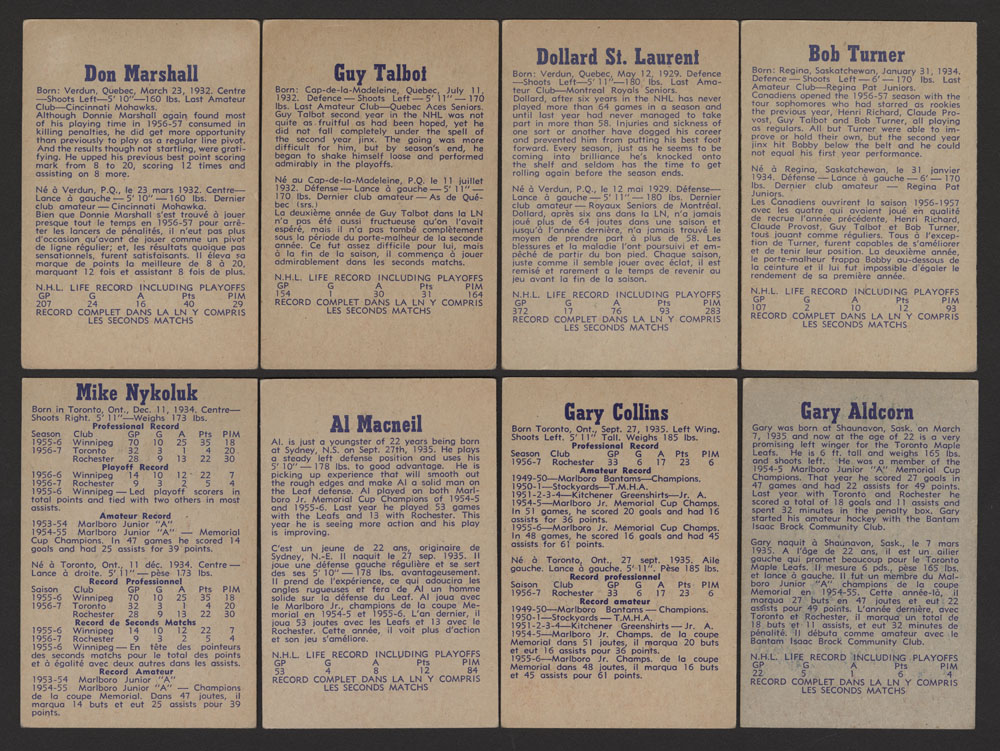 Don Marshall
Born: Verdun, Quebec, March 23, 1932. Centre
—Shoots Left—5' 10"—160 lbs. Last Amateur
Club—Cincinnati Mohawks.
Although Donnie Marshall again found most
of his playing time in 1956-57 consumed in
killing penalties, he did get more opportunity
than previously to play as a regular line pivot.
And the results though not startling, were grati-
fying. He upped his previous best point scoring
mark from 8 to 20, scoring 12 times and
assisting on 8 more.
Né à Verdun, P.Q., le 23 mars 1932. Centre—
Lance à gauche — 5' 10" — 160 lbs. Dernier
club amateur — Cincinnati Mohawka.
Bien que Donnie Marshall s'est trouvé à jouer
presque tout le temps en 1956-57 pour arrê-
ter les lancers de pénalités, il n'eut pas plus
d'occasion qu'avant de jouer comme un pivot
de ligne régulier; et, les résultats quoique pas
sensationnels, furent satisfaisants. Il éleva sa
marque de points la meilleure de 8 à 20,
marquant 12 fois et assistant 8 fois de plus.
N.H.L. LIFE RECORD INCLUDING PLAYOFFS
GP G A Pts PIM
207 24 16 40 29
RECORD COMPLET DANS LA LN Y COMPRIS
LES SECONDS MATCHS
Guy Talbot
Born: Cap-de-la-Madeleine, Quebec, July 11,
1932. Defence — Shoots Left — 5' 11" — 170
lbs. Last Amateur Club—Quebec Aces Seniors.
Guy Talbot second year in the NHL was not
quite as fruitful as had been hoped, yet he
did not fall completely under the spell of
the second year jinx. The going was more
difficult for him, but by season's end, he
began to shake himself loose and performed
admirably in the playoffs.
Né au Cap-de-la-Madeleine, P.Q. le 11 juillet
1932. Défense — Lance à gauche — 5' 11" —
170 lbs. Dernier club amateur — As de Qué-
bec (srs.)
La deuxième année de Guy Talbot dans la LN
n'a pas été aussi fructueuse qu'on l'avait
espéré, mais il n'a pas tombé complètement
sous la période du porte-malheur de la seconde
année. Ce fut assez difficile pour lui, mais
à la fin de la saison, il commença à jouer
admirablement dans les seconds matchs.
N.H.L. LIFE RECORD INCLUDING PLAYOFFS
GP G A Pts PIM
154 1 30 31 164
RECORD COMPLET DANS LA LN Y COMPRIS
LES SECONDS MATCHS
Dollard St. Laurent
Born: Verdun, Quebec, May 12, 1929. Defence
—Shoots Left—5' 11"—180 lbs. Last Ama-
teur Club—Montreal Royals Seniors.
Dollard, after six years in the NHL has never
played more than 64 games in a season and
until last year had never managed to take
part in more than 58. Injuries and sickness of
one sort or another have dogged his career
and prevented him from putting his best foot
forward. Every season, just as he seems to be
coming into brilliance he's knocked onto
the shelf and seldom has the time to get
rolling again before the season ends.
Né à Verdun, P.Q., le 12 mai 1929. Défense—
Lance à gauche — 5' 11" — 180 lbs. Dernier
club amateur — Royaux Seniors de Montréal.
Dollard, après six ans dans la LN, n'a jamais
joué plus de 64 joutes dans une saison et
jusqu'à l'année dernière, n'a jamais trouvé le
moyen de prendre part à plus de 58. Les
blessures et la maladie l'ont poursuivi et em-
pêché de partir du bon pied. Chaque saison,
juste comme il semble jouer avec éclat, il est
remisé et rarement a le temps de revenir au
jeu avant la fin de la saison.
N.H.L. LIFE RECORD INCLUDING PLAYOFFS
GP G A Pts PIM
372 17 76 93 283
RECORD COMPLET DANS LA LN Y COMPRIS
LES SECONDS MATCHS
Bob Turner
Born: Regina, Saskatchewan, January 31, 1934.
Defence — Shoots Left — 6' — 170 lbs. Last
Amateur Club—Regina Pat Juniors.
Canadiens opened the 1956-57 season with the
tour sophomores who had starred as rookies
the previous year, Henri Richard, Claude Pro-
vost, Guy Talbot and Bob Turner, all playing
as regulars. All but Turner were able to im-
prove or hold their own, but the second year
jinx hit Bobby below the belt and he could
not equal his first year performance.
Né à Regina, Saskatchewan, le 31 janvier
1934. Défense — Lance à gauche — 6' — 170
lbs. Dernier club amateur — Regina Pat
Juniors.
Les Canadiens ouvrirent la saison 1956-1957
avec les quatre qui avaient joué en qualité
de recrue l'année précédente, Henri Richard,
Claude Provost, Guy Talbot et Bob Turner,
tous jouant comme réguliers. Tous à l'excep-
tion de Turner, furent capables de s'améliorer
et de tenir leur position. La deuxième année,
le porte-malheur frappa Bobby au-dessous de
la ceinture et il lui fut impossible d'égaler le
rendement de sa première année.
N.H.L. LIFE RECORD INCLUDING PLAYOFFS
GP G A Pts PIM
107 2 10 12 93
RECORD COMPLET DANS LA LN Y COMPRIS
LES SECONDS MATCHS
Mike Nykoluk
Born in Toronto, Ont., Dec. 11, 1934. Centre—
Shoots Right. 5' 11"—Weighs 173 lbs.
Professional Record
Season Club GP G A Pts PIM
1955-6 Winnipeg 70 10 25 35 18
1956-7 Toronto 32 3 1 4 20
Rochester 28 9 13 22 30
Playoff Record
1955-6 Winnipeg 14 10 12 22 7
1956-7 Rochester 9 3 2 5 4
1955-6 Winnipeg—Led playoff scorers in
total points and tied with two others in most
assists.
Amateur Record
1953-54 Marlboro Junior "A"
1954-55 Marlboro Junior "A" — Memorial
Cup Champions. In 47 games he scored 14
goals and had 25 assists for 39 points.
Né à Toronto, Ont., 11 déc. 1934 — Centre
Lance à droite. 5' 11" — pèse 173 lbs.
Record Professionnel
Saison Club GP G A Pts PIM
1955-6 Winnipeg 70 10 25 35 18
1956-7 Toronto 32 3 1 4 20
Rochester 28 9 13 22 30
Record de Seconds Matchs
1955-6 Winnipeg 14 10 12 22 7
1956-7 Rochester 9 3 2 5 4
1955-6 Winnipeg — En tête des pointeurs
des seconds matchs pour le total des points
et à égalité avec deux autres dans les assists.
Record Amateur
1953-54 Marlboro Junior "A"
1954-55 Marlboro Junior "A" — Champions
de la coupe Memorial. Dans 47 joutes, il
marqua 14 buts et eut 25 assists pour 39
points.
Al Macneil
Al. is just a youngster of 22 years being born
at Sydney, N.S. on Sept. 27th, 1935. He plays
a steady left defence position and uses his
5' 10" — 178 lbs. to good advantage. He is
picking up experience that will smooth out
the rough edges and make Al a solid man on
the Leaf defense. Al played on both Marl-
boro Jr. Memorial Cup Champions of 1954-5
and 1955-6. Last year he played 53 games
with the Leafs and 13 with Rochester. This
year he is seeing more action and his play
is improving.
C'est un jeune de 22 ans, originaire de
Sydney, N.-E. Il naquit le 27 sep. 1935. Il
joue une défense gauche régulière et se sert
des ses 5' 10" — 178 lbs. avantageusement.
Il prend de l'expérience, ce qui adoucira les
angles rugueuses et fera de Al un homme
solide sur la défense du Leaf. Al joua avec
le Marlboro Jr., champions de la coupe Me-
morial en 1954-5 et 1955-6. L'an dernier, il
joua 53 joutes avec les Leafs et 13 avec le
Rochester. Cette année, il voit plus d'action
et son jeu s'améliore.
N.H.L. LIFE RECORD INCLUDING PLAYOFFS
GP G A Pts PIM
53 4 8 12 84
RECORD COMPLET DANS LA LN Y COMPRIS
LES SECONDS MATCHS
Gary Collins
Born Toronto, Ont., Sept. 27, 1935. Left Wing.
Shoots Left. 5' 11" Tall. Weighs 185 lbs.
Professional Record
Season Club GP G A Pts PIM
1956-7 Rochester 33 6 17 23 6
Amateur Record
1949-50—Marlboro Bantams—Champions.
1950-1—Stockyards—T.M.H.A.
1951-2-3-4—Kitchener Greenshirts—Jr. A.
1954-5—Marlboro Jr. Memorial Cup Champs.
In 51 games, he scored 20 goals and 16
assists for 36 points.
1955-6—Marlboro Jr. Memorial Cup Champs.
In 48 games, he scored 16 goals and 45
assists for 61 points.
Né à Toronto, Ont., 27 sept. 1935. Aile
gauche. Lance à gauche. 5' 11". Pèse 185 lbs.
Record professionnel
Saison Club GP G A Pts PIM
1956-7 Rochester 33 6 17 23 6
Record amateur
1949-50—Marlboro Bantams — Champions.
1950-1—Stockyards — T.M.H.A.
1951-2-3-4—Kitchener Greenshirts — Jr. A.
1954-5—Marlboro Jr. Champs. de la coupe
Memorial dans 51 joutes, il marqua 20 buts
et eut 16 assists pour 36 points.
1955-6—Marlboro Jr. Champs. de la coupe
Memorial dans 48 joutes, il marqua 16 buts
et 45 assists pour 61 points.
Gary Aldcorn
Gary was born at Shaunavon, Sask. on March
7, 1935 and now at the age of 22 is a very
promising left winger for the Toronto Maple
Leafs. He is 6 ft. tall and weighs 165 lbs.
and shoots left. He was a member of the
1954-5 Marlboro Junior "A" Memorial Cup
Champions. That year he scored 27 goals in
47 games and had 22 assists for 49 points.
Last year with Toronto and Rochester he
scored a total of 18 goals and 11 assists and
spent 32 minutes in the penalty box. Gary
started his amateur hockey with the Bantam
Isaac Brock Community Club.
Gary naquit à Shaunavon, Sask., le 7 mars
1935. A l'âge de 22 ans, il est un ailier
gauche qui promet beaucoup pour le Toronto
Maple Leafs. Il mesure 6 pds., pèse 165 lbs.
et lance à gauche. Il fut un membre du Mal-
boro Junior "A" champions de la coupe
Memorial en 1954-55. Cette année-là, il
marqua 27 buts en 47 joutes et eut 22
assists pour 49 points. L'année dernière, avec
Toronto et Rochester, il marqua un total de
18 buts et 11 assists, et eut 32 minutes de
pénalité. Il débuta comme amateur avec le
Bantam Isaac Brock Community Club.
N.H.L. LIFE RECORD INCLUDING PLAYOFFS
GP G A Pts PIM
22 5 1 6 4
RECORD COMPLET DANS LA LN Y COMPRIS
LES SECONDS MATCHS